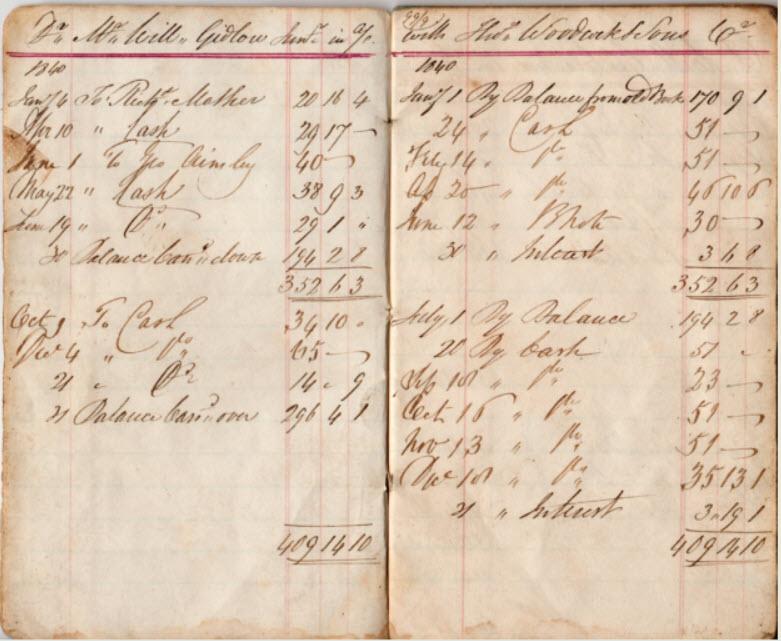 Dr Mr Will,, Gidlow Junr in a/c
1840
Jany 4 To Richd Mather 20 16 4
Apr 10 " Cash 29 17 —
June 1 To Geo Ainsley 40 —
May 22 " Cash 38 9 3
June 19 " Do 29 1 "
30 Balance Carrd down 194 2 8
352 6 3
Oct 9 To Cash 34 10 "
Dec 4 " Do 65 —
21 " Do 14 " 9
31 Balance Carrd over 296 4 1
409 14 10
with Thos Woodcock & Sons Cr
1840
Jany 1 By Balance from old Book 170 9 1
24 " Cash 51 —
Feby 14 " Do 51 —
Ap 20 " Do 46 10 6
June 12 " B Note 30 —
30 " Interest 3 6 8
352 6 3
July 1 By Balance 194 2 8
20 By Cash 51 "
Sep 18 " Do 23 —
Oct 16 " Do 51 —
Nov 13 " Do 51 —
Dec 18 " Do 35 13 1
31 " Interest 3 " 19 1
409 14 10